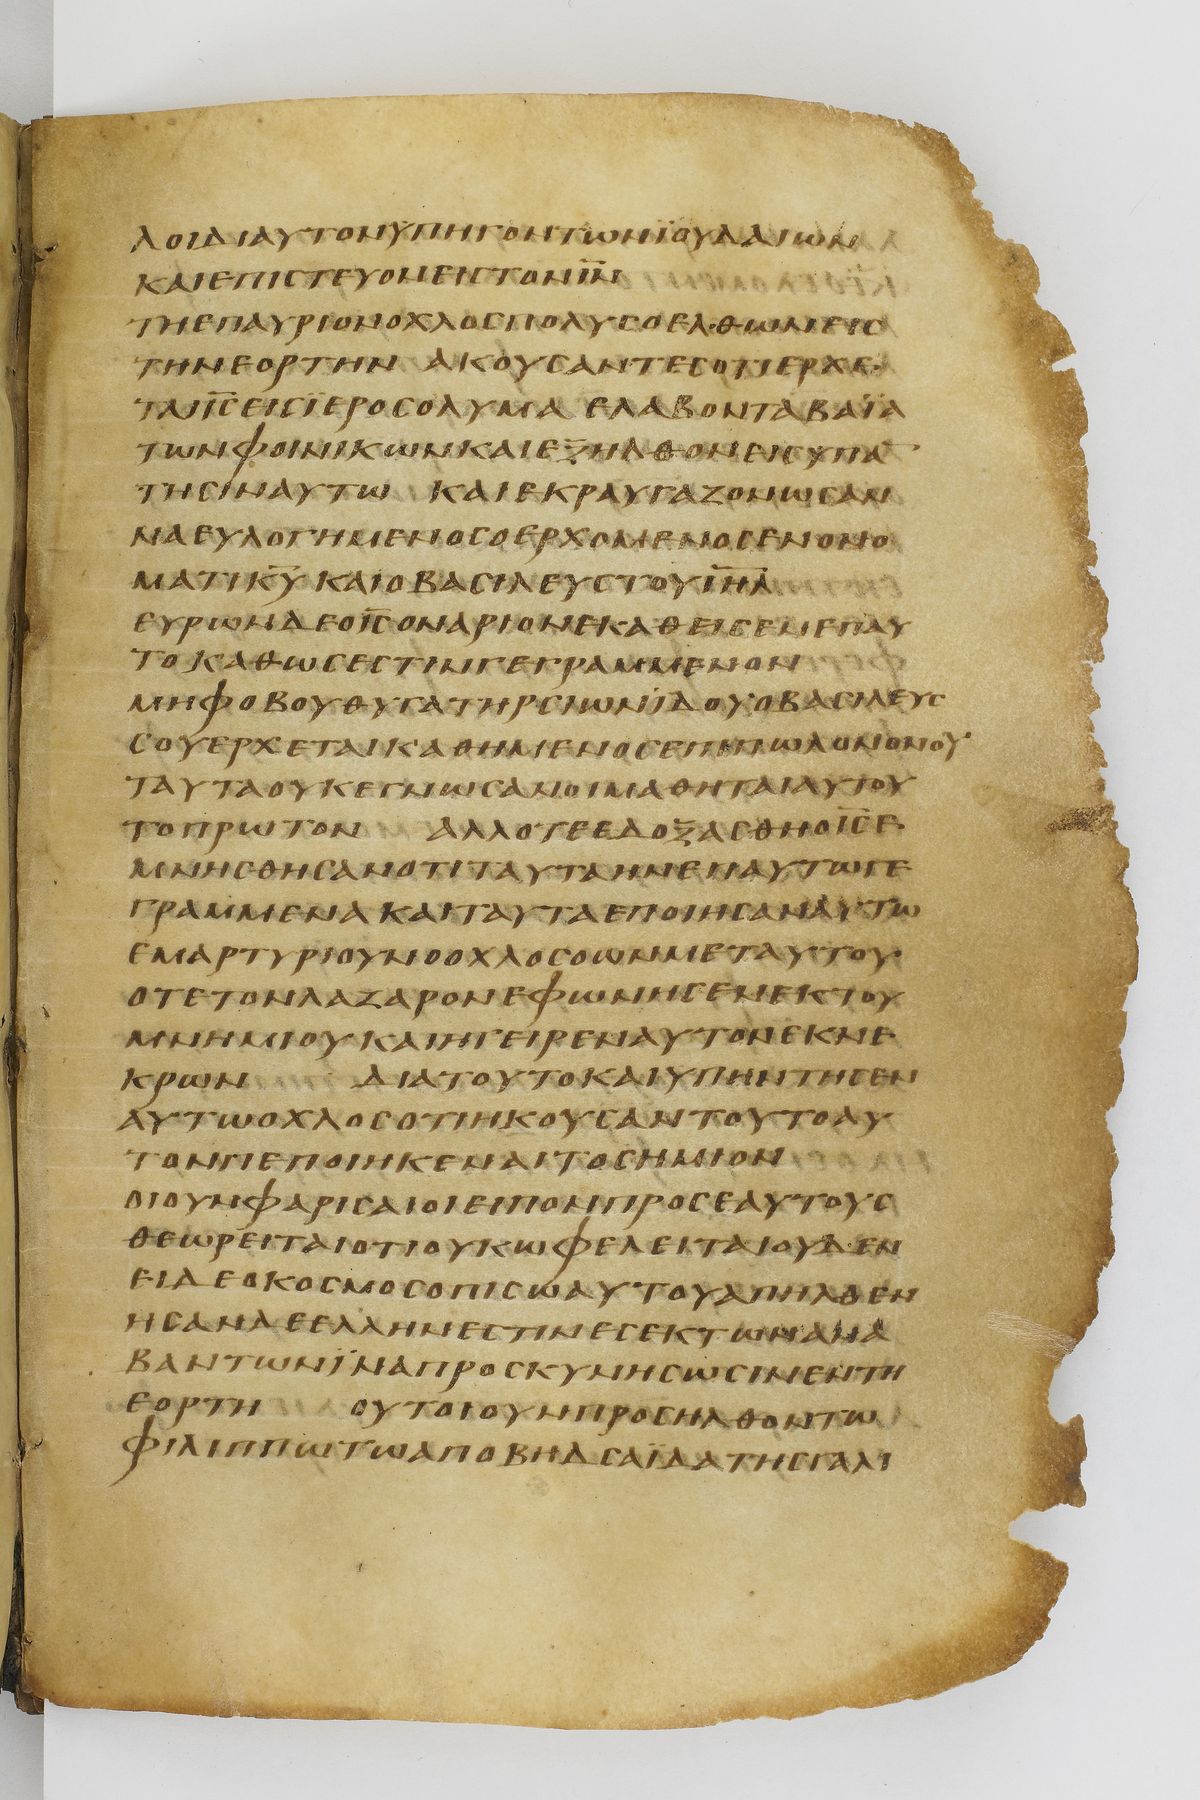 λοιδιαυτονϋπηγοντωνϊουδαιων
καιεπιστευονειστονιν
τηεπαυριονοχλοσπολυσοελθωνεισ
τηνεορτην ακουσαντεσοτιερχε
ταιισειςϊεροσολυμα ελαβονταβαϊα
τωνφοινικωνκαιεξηλθονεισυπα
τησιναυτω καιεκραυγαζονωσαν
ναευλογημενοσοερχομενοσενονο
ματικυ καιοβασιλευστουιηλ
ευρωνδεοισοναριονεκαθεισενεπαυ
τοκαθωσεστινγεγραμμενον
μηφοβουθυγατηρσιωνϊδουοβασιλευσ
σουερχεταικαθημενοσεπιπωλονονου
ταυταουκεγνωσανοιμαθηταιαυτου
τοπρωτον αλλοτεεδοξασθηοισε
μνησθησανοτιταυταηνεπαυτωγε
γραμμενακαιταυταεποιησαναυτω
εμαρτυριουνοοχλοσοωνμεταυτου
οτετονλαζαρονεφωνησενεκτου
μνημιουκαιηγειρεναυτονεκνε
κρων διατουτοκαιυπηντησεν
αυτωοχλοσοτιηκουσαντουτοαυ
τονπεποιηκεναιτοσημιον
οιουνφαρισαιοιειπονπροσεαυτουσ
θεωρειταιοτιουκωφελειταιουδεν
ειδεοκοσμοσοπισωαυτουαπηλθεν
ησανδεελληνεστινεσεκτωνανα
βαντωνϊναπροσκυνησωσινεντη
εορτη ουτοιουνπροσηλθοντω
φιλιππωτωαποβηδσαϊδατησγαλι